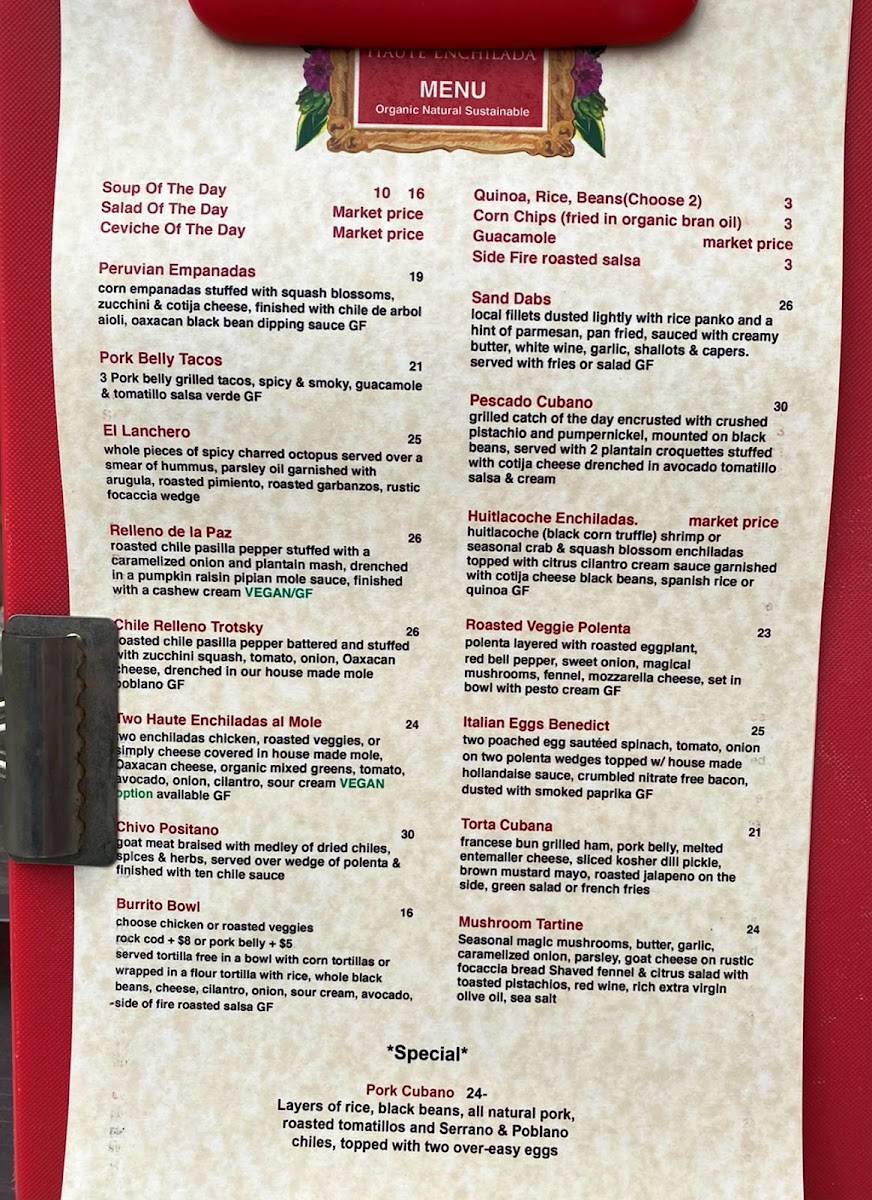 HAUTE ENCHILADA
MENU
Organic Natural Sustainable
Soup Of The Day 10 16
Salad Of The Day Market price
Ceviche Of The Day Market price
Peruvian Empanadas 19
corn empanadas stuffed with squash blossoms,
zucchini & cotija cheese, finished with chile de arbol
aioli, oaxacan black bean dipping sauce GF
Pork Belly Tacos 21
3 Pork belly grilled tacos, spicy & smoky, guacamole
& tomatillo salsa verde GF
El Lanchero 25
whole pieces of spicy charred octopus served over a
smear of hummus, parsley oil garnished with
arugula, roasted pimiento, roasted garbanzos, rustic
focaccia wedge
Relleno de la Paz 26
roasted chile pasilla pepper stuffed with a
caramelized onion and plantain mash, drenched
in a pumpkin raisin pipian mole sauce, finished
with a cashew cream VEGAN/GF
Chile Relleno Trotsky 26
roasted chile pasilla pepper battered and stuffed
with zucchini squash, tomato, onion, Oaxacan
cheese, drenched in our house made mole
poblano GF
Two Haute Enchiladas al Mole 24
two enchiladas chicken, roasted veggies, or
simply cheese covered in house made mole,
Oaxacan cheese, organic mixed greens, tomato,
avocado, onion, cilantro, sour cream VEGAN
option available GF
Chivo Positano 30
goat meat braised with medley of dried chiles,
spices & herbs, served over wedge of polenta &
finished with ten chile sauce
Burrito Bowl 16
choose chicken or roasted veggies
rock cod + $8 or pork belly + $5
served tortilla free in a bowl with corn tortillas or
wrapped in a flour tortilla with rice, whole black
beans, cheese, cilantro, onion, sour cream, avocado,
-side of fire roasted salsa GF
Quinoa, Rice, Beans(Choose 2) 3
Corn Chips (fried in organic bran oil) 3
Guacamole market price
Side Fire roasted salsa 3
Sand Dabs 26
local fillets dusted lightly with rice panko and a
hint of parmesan, pan fried, sauced with creamy
butter, white wine, garlic, shallots & capers.
served with fries or salad GF
Pescado Cubano 30
grilled catch of the day encrusted with crushed
pistachio and pumpernickel, mounted on black
beans, served with 2 plantain croquettes stuffed
with cotija cheese drenched in avocado tomatillo
salsa & cream
Huitlacoche Enchiladas. market price
huitlacoche (black corn truffle) shrimp or
seasonal crab & squash blossom enchiladas
topped with citrus cilantro cream sauce garnished
with cotija cheese black beans, spanish rice or
quinoa GF
Roasted Veggie Polenta 23
polenta layered with roasted eggplant,
red bell pepper, sweet onion, magical
mushrooms, fennel, mozzarella cheese, set in
bowl with pesto cream GF
Italian Eggs Benedict 25
two poached egg sautéed spinach, tomato, onion
on two polenta wedges topped w/ house made
hollandaise sauce, crumbled nitrate free bacon,
dusted with smoked paprika GF
Torta Cubana 21
francese bun grilled ham, pork belly, melted
entemaller cheese, sliced kosher dill pickle,
brown mustard mayo, roasted jalapeno on the
side, green salad or french fries
Mushroom Tartine 24
Seasonal magic mushrooms, butter, garlic,
caramelized onion, parsley, goat cheese on rustic
focaccia bread Shaved fennel & citrus salad with
toasted pistachios, red wine, rich extra virgin
olive oil, sea salt
*Special*
Pork Cubano 24-
Layers of rice, black beans, all natural pork,
roasted tomatillos and Serrano & Poblano
chiles, topped with two over-easy eggs